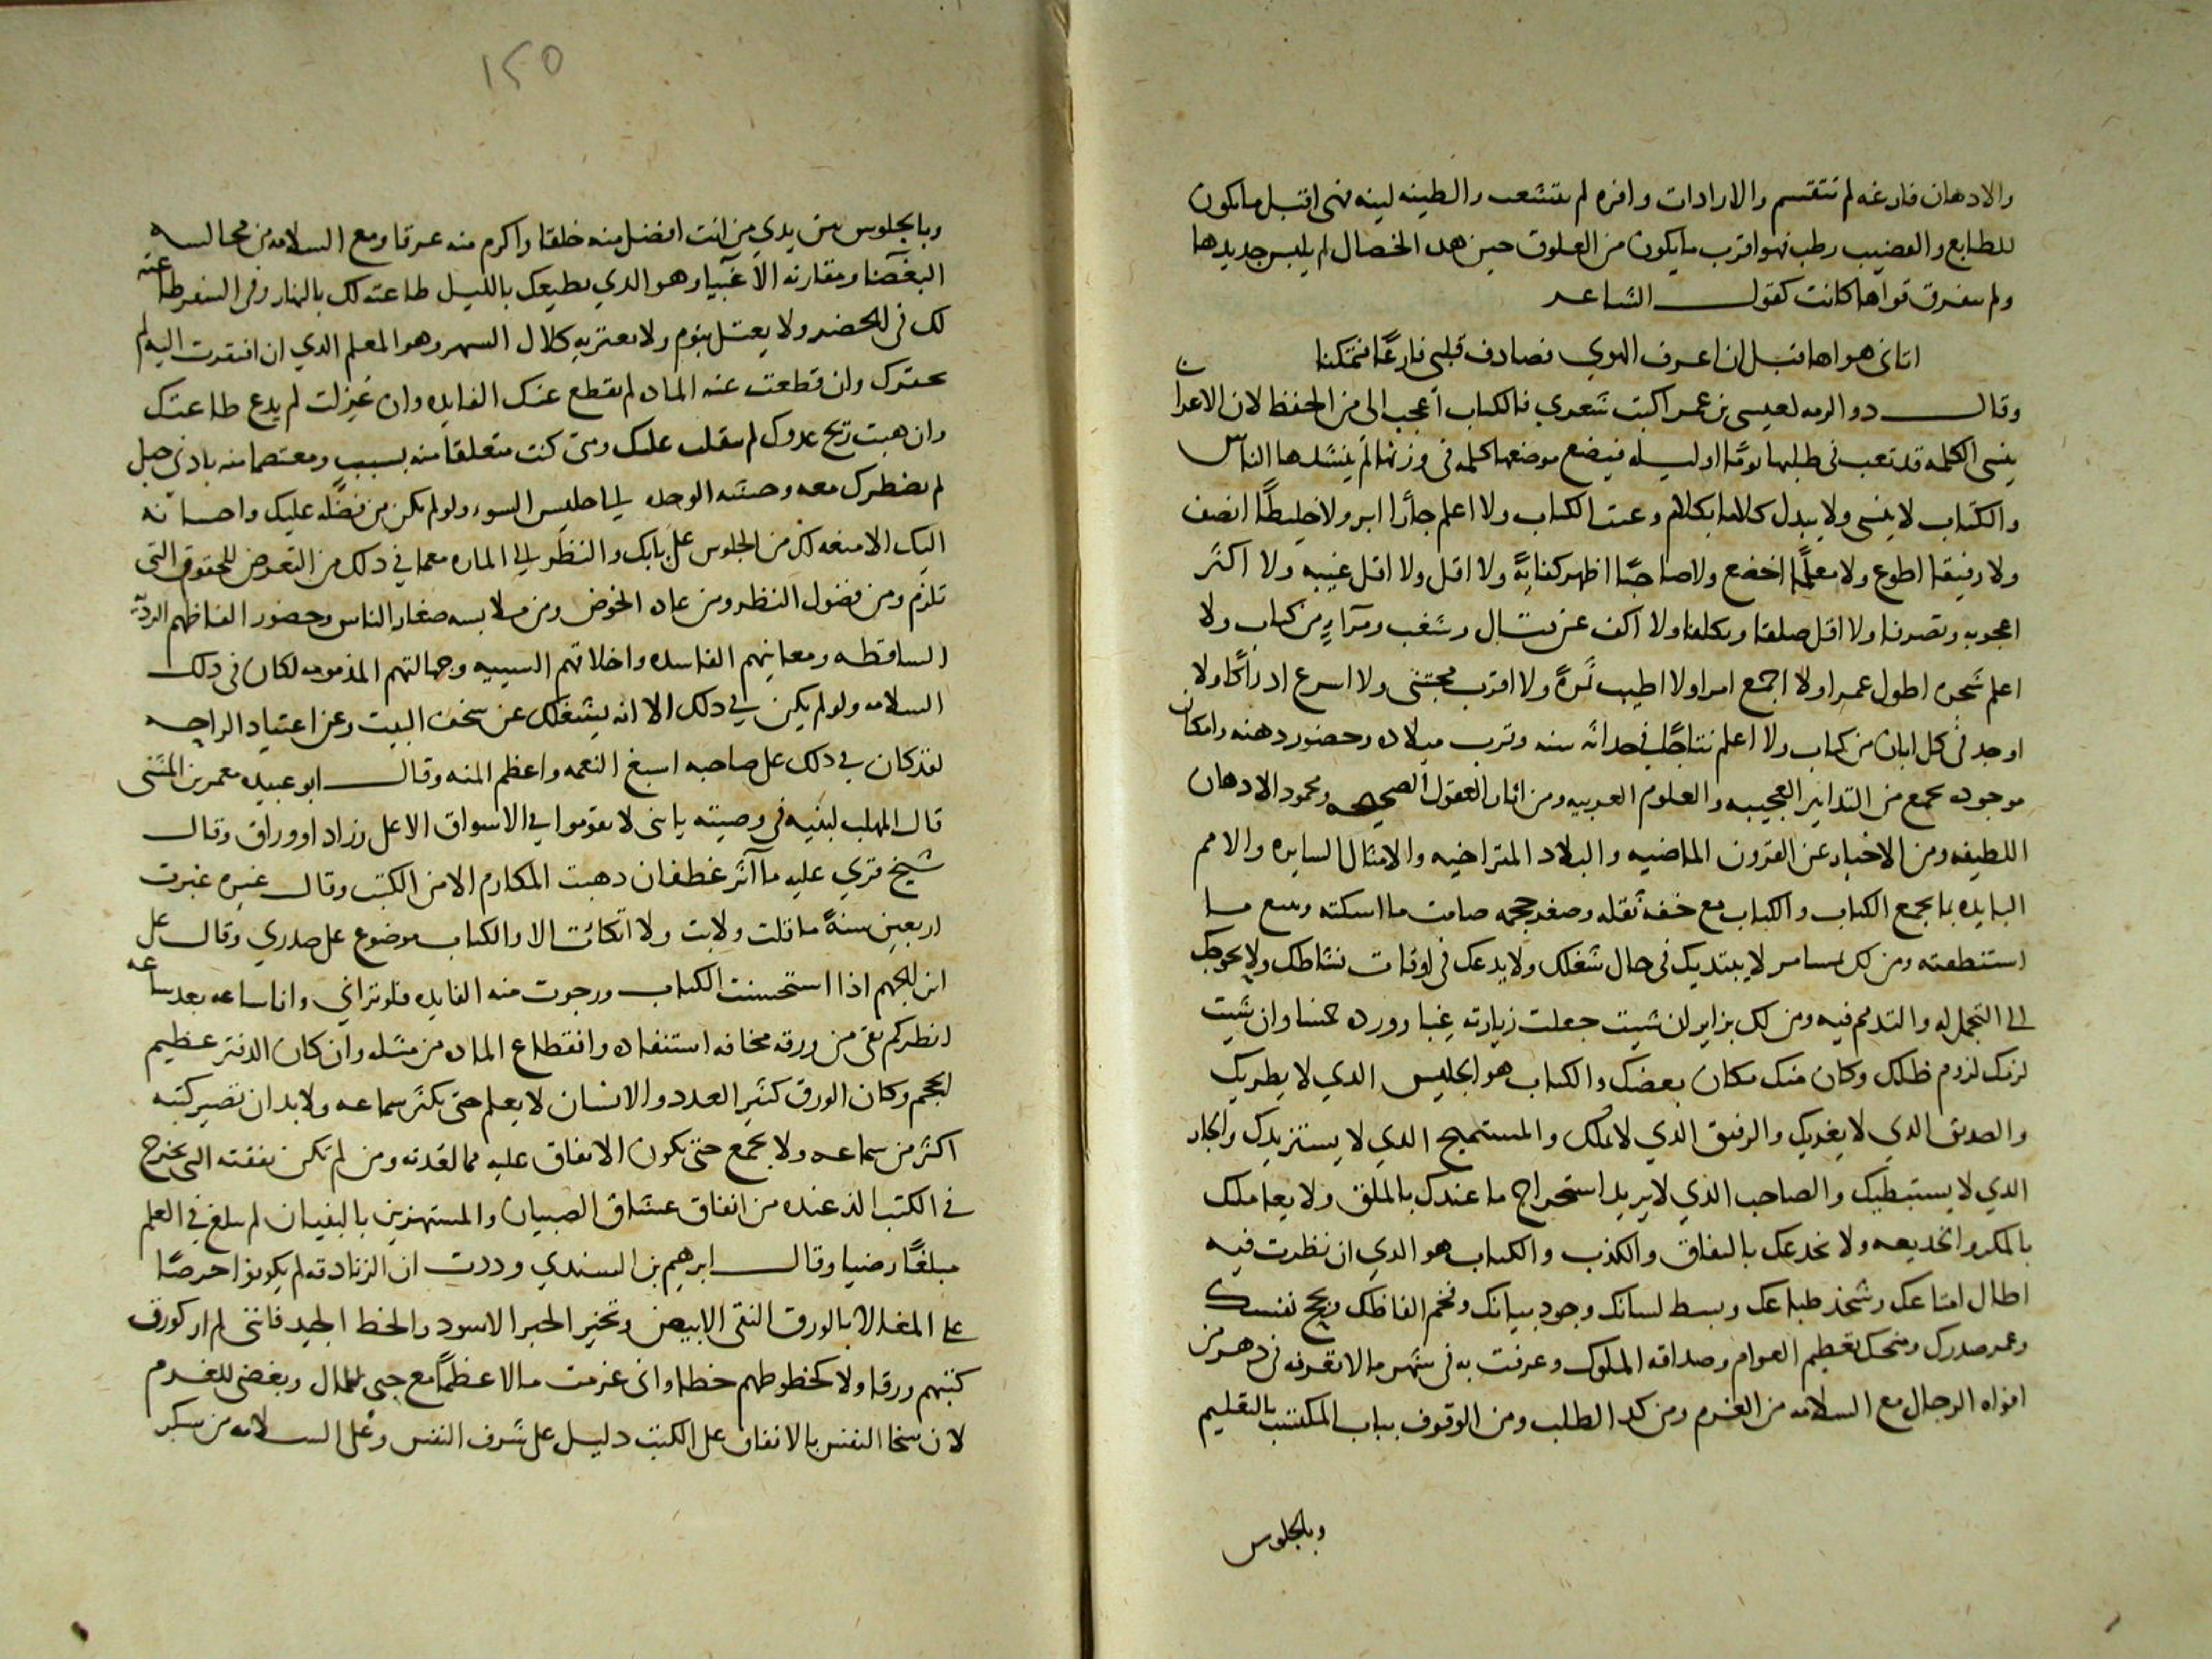 والاذهان فارغه لم تنقسم والارادات وافره لم تتشعب والطينه لينه فهى اقبل ما يكون
للطبايع والقضيب رطب فهو اقرب ما يكون من العلوق حين هذه الخصال لم يلبس جديدها
ولم يتفرق قواها كانت كقول الشاعر
اتانى هواها قبل ان اعرف الهوي فصادف قلبى فارغًا فتمكنا
وقال ذو الرمه لعيسى بن عمر اكتب شعري فالكتاب أعجب الى من الحفظ لان الاعرابى
ينسى الكلمه قد تعب فى طلبها يومًا او ليله فيضع موضعها كلمه فى وزنها ثم ينشدها الناس
والكتاب لا ينسى ولا يبدل كلاما بكلام وعبت الكتاب ولا اعلم جارا ابر ولا خليطًا انصف
ولا رفيقا اطوع ولا معلمًا اخضع ولا صاحبًا اظهر كفايةً ولا اقل ولا اقل غيبه ولا اكثر
اعجوبه وتصرفا ولا اقل صلفا وتكلفا ولا اكف عن قتال وشغب ومرآء من كتاب ولا
اعلم شجره اطول عمرا ولا اجمع امرا ولا اطيب ثمرةً ولا اقرب مجتنى ولا اسرع ادراكًا ولا
اوجد فى كل ابان من كتاب ولا اعلم نتاجًا فى حداثه سنه وقرب ميلاده وحضور ذهنه وامكان
موجوده يجمع من التدابير العجيبه والعلوم الغريبه ومن اثار العقول الصحيحه ومحمود الاذهان
اللطيفه ومن الاخبار عن القرون الماضيه والبلاد المتراخيه والامثال السايره والامم
البايده ما يجمع الكتاب والكتاب مع خفه نقله وصغر حجمه صامت ما اسكته وبليغ ما
استنطقته ومن لك بمسامر لا يبتديك فى حال شغلك ولا يدعك فى اوقات نشاطك ولا يحوجك
الى التجمل له والتذمم فيه ومن لك بزاير ان شيت جعلت زيارته غبا وورده خمسا وان شيت
لزمك لزوم ظلك وكان منك مكان بعضك والكتاب هو الجليس الذي لا يطريك
والصديق الذي لا يغريك والرفيق الذي لا يملك والمستميح الذي لا يستزيدك والجار
الذي لا يستبطيك والصاحب الذي لا يريد استخراج ما عندك بالملق ولا يعاملك
بالمكر والخديعه ولا يخدعك بالنفاق والكذب والكتاب هو الذي ان نظرت فيه
اطال امتاعك وشحذ طباعك وبسط لسانك وجود بيانك وفخم الفاظك وبجح نفسك
وعمر صدرك ومنحك تعظيم العوام وصداقه الملوك وعرفت به فى شهر ما لا تعرفه فى دهر من
افواه الرجال مع السلامه من الغرم ومن كد الطلب ومن الوقوف بباب المكتسب بالتعليم
وبالجلوس
١٢٥
وبالجلوس بين يدي من انت افضل منه خلقا واكرم منه عرقا ومع السلامه من مجالسه
البغضا ومقارنه الاغبيا وهو الذي يطيعك بالليل طاعته لك بالنهار وفى السفر طاعته
لك فى الحضر ولا يعتل بنوم ولا يعتريه كلال السهر وهو المعلم الذي ان افتقرت اليه لم
يحقرك وان قطعت عنه الماده لم يقطع عنك الفايده وان عزلت لم يدع طاعتك
وان هبت ريح عدوك لم ينقلب عليك ومتى كنت متعلقا منه بسبب ومعتصما منه بادنى حبل
لم يضطرك معه وحشه الوحده الى جليس السوء ولو لم يكن من فضله عليك واحسانه
اليك الا منعه لك من الجلوس على بابك والنظر الى الماره مع ما فى ذلك من التعرض للحقوق التى
تلزم ومن فضول النظر ومن عاده الخوض ومن ملابسه صغار الناس وحضور الفاظهم الرديه
الساقطه ومعانيهم الفاسده واخلاقهم السييه وجهالتهم المذمومه لكان فى ذلك
السلامه ولو لم يكن فى ذلك الا انه يشغلك عن سخف البيت وعن اعتياد الراحه
لقد كان فى ذلك على صاحبه اسبغ النعمه واعظم المنه وقال ابو عبيده معمر بن المثنى
قال المهلب لبنيه فى وصيته يا بنى لا تقوموا فى الاسواق الا على زراد او وراق وقال
شيخ قري عليه مآثر غطفان ذهبت المكارم الا من الكتب وقال غيره غبرت
اربعين سنةً ما قلت ولا بت ولا اتكات الا والكتاب موضوع على صدري وقال على
ابن الجهم اذا استحسنت الكتاب ورجوت منه الفايده فلو ترانى وانا ساعه بعد ساعه
انظر كم بقى من ورقه مخافه استنفاده وانقطاع الماده من مثله وان كان الدفتر عظيم
الحجم وكان الورق كثير العدد والانسان لا يعلم حتى يكثر سماعه ولا بد ان تصير كتبه
اكثر من سماعه ولا يجمع حتى يكون الانفاق عليه مما لقدته ومن لم تكن نفقته التى تخرج
فى الكتب الذ عنده من انفاق عشاق الصبيان والمستهزين بالبنيان لم يبلغ فى العلم
مبلغًا رضيا وقال ابرهيم بن السندي وددت ان الزنادقه لم يكونوا حرصًا
على المغالاة بالورق النقى الابيض وتخير الحبر الاسود والخط الجيد فانى لم ار كورق
كتبهم ورقا ولا كخطوطهم خطا وانى غرمت مالا عظيمًا مع حبى للمال وبغضى للغرم
لان سخا النفس بالانفاق على الكتب دليل على شرف النفس وعلى السلامه من سكر